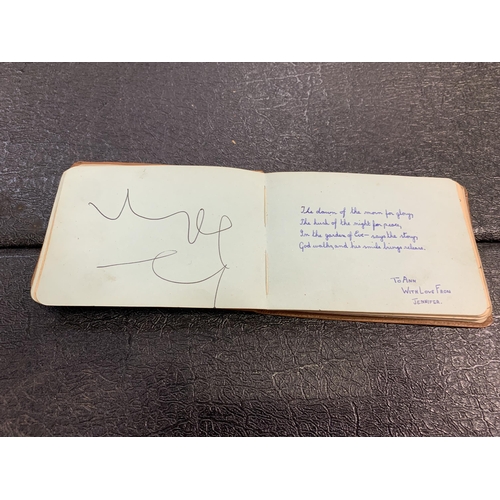 The dawn of the morn for glory,
The hush of the night for peace,
In the garden of Eve – says the story,
God walks, and his smile brings release.
To Ann
With Love From
Jennifer.